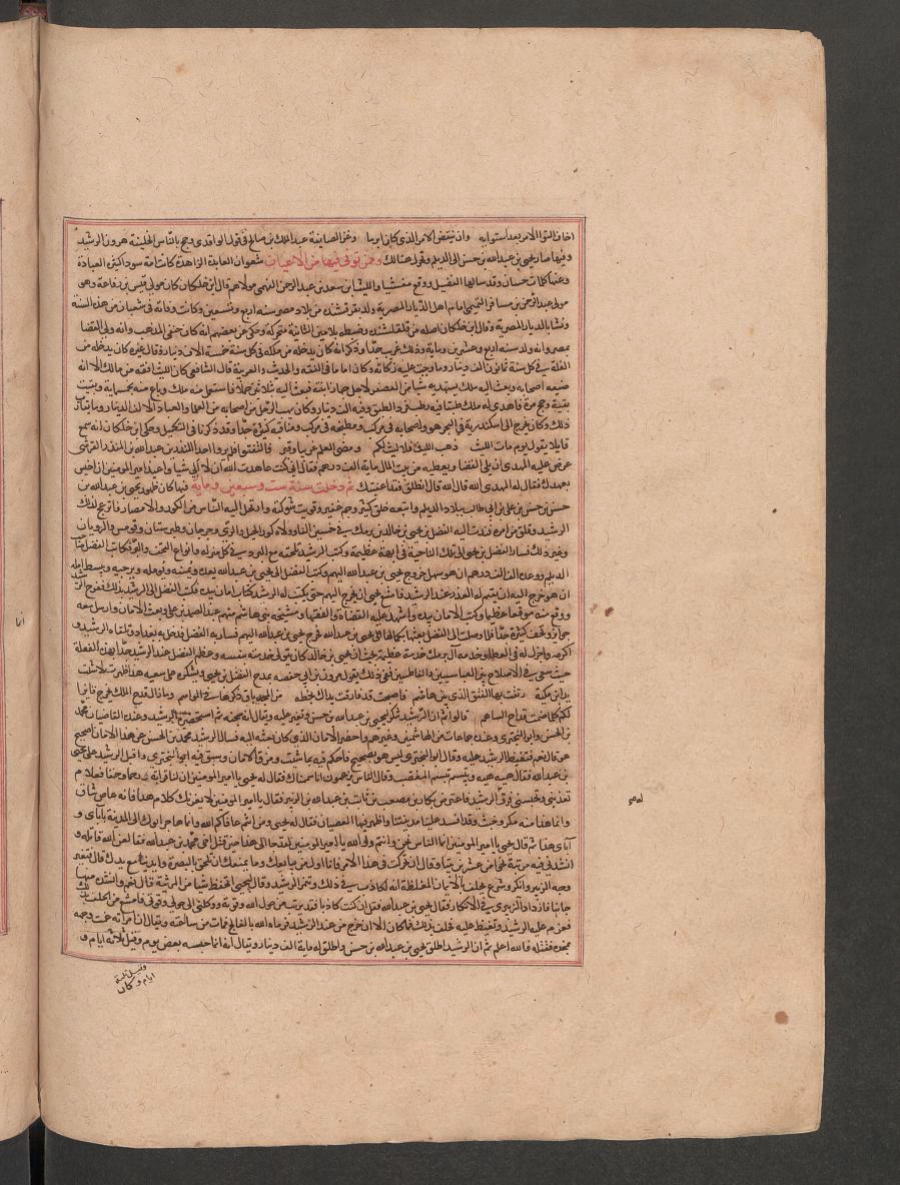 اخاف التوا الامر بعد استوايه وان ينتقض الامر الذي كان ابرما وغزا الصايفة عبد الملك بن صالح في قول الواقدي وحج بالناس الخليفة هرون الرشيد
وفيها صار يحيى بن عبد الله بن حسن الى الديلم وتحرك هنالك وممن توفي فيها من الاعيان شعوانة العابدة الزاهدة كانت امة سودا كثيرة العبادة
وعنها كلمات حسان وقد سالها الفضيل والليث بن سعد بن عبد الرحمن الفهمي مولاهم قال ابن خلكان كان مولى قيس بن رفاعة وهو
مولى عبد الرحمن بن مسافر الفهمي امام اهل الديار المصرية ولد بقرقشندة من بلاد مصر سنة اربع وتسعين وكانت وفاته في شعبان من هذه السنة
ونشا بالديار المصرية وقال ابن خلكان اصله من قلقشندة وضبطه بلامين الثانية متحركة وحكى عن بعضهم انه كان حنفي المذهب وانه ولي القضا
بمصر وانه ولد سنة اربع وعشرين وماية وذلك غريب جدا وذكر انه كان يدخله من ملكه في كل سنة خمسة الاف دينار وقال غيره كان يدخله من
الغلة في كل سنة ثمانون الف دينار وما وجبت عليه زكاة وكان اماما في الفقه والحديث والعربية قال الشافعي كان الليث افقه من مالك الا انه
ضيعه اصحابه وبعث اليه ملك يستهديه شيا من العصفر لاجل جهاز ابنته فبعث اليه ثلاثين حملا فاستعمل منه ملك وباع منه بخمسماية وبقيت
بقية وحج مرة فاهدى له ملك طبقا فيه رطب فرد الطبق وفيه الف دينار وكان يهب الرجل من اصحابه من العلما والعباد الالف الدينار وما يقارب
ذلك وكان يخرج الى اسكندرية في البحر هو واصحابه في مركب ومطبخه في مركب ومناقبه كثيرة جدا وقد ذكرنا في التكميل وحكى ابن خلكان انه سمع
قايلا يقول يوم مات الليث ذهب الليث فلا ليث لكم ومضى العلم غريبا وقبر فالتفتوا فلم يروا احدا المنذر بن عبد الله بن المنذر القرشي
عرض عليه المهدي ان يلي القضا ويعطيه من بيت المال ماية الف درهم فقال اني كنت عاهدت الله ان لا الي شيا واعيذ امير المومنين ان اخيس
بعهدك فقال له المهدي الله قال الله قال انطلق فقد اعفيتك ثم دخلت سنة ست وسبعين وماية فيها كان ظهور يحيى بن عبد الله بن
حسن بن حسن بن علي بن ابي طالب ببلاد الديلم واتبعه خلق كثير وجم غفير وقويت شوكته وارتحل اليه الناس من الكور والامصار فانزعج لذلك
الرشيد وقلق من امره فندب اليه الفضل بن يحيى بن خالد بن برمك في خمسين الفا وولاه كور الجبل والري وجرجان وطبرستان وقومس والرويان
وغير ذلك فسار الفضل بن يحيى الى تلك الناحية في ابهة عظيمة وكتب الرشيد تلحقه مع البرد في كل منزلة وانواع التحف والبر وكاتب الفضل صاحب
الديلم ووعده الف الف درهم ان هو سهل خروج يحيى بن عبد الله اليهم وكتب الفضل الى يحيى بن عبد الله يعده ويمنيه ويومله ويرجيه ويبسط امله
ان هو خرج اليه ان يقيم له العذر عند الرشيد فامتنع يحيى ان يخرج اليهم حتى يكتب له الرشيد كتاب امان بيده فكتب الفضل الى الرشيد بذلك ففرح الرشيد
ووقع منه موقعا عظيما وكتب الامان بيده واشهد عليه القضاة والفقها ومشيخة بني هاشم منهم عبد الصمد بن علي وبعث الامان وارسل معه
جوايز وتحفا كثيرة جدا فلما وصلت الى الفضل بعثها بكمالها الى يحيى بن عبد الله فخرج يحيى بن عبد الله اليهم فسار به الفضل فدخل به بغداد وتلقاه الرشيد و
اكرمه واجزل له في العطا وخدمه آل برمك خدمة عظيمة بحيث ان يحيى بن خالد كان يتولى خدمته بنفسه وعظم الفضل عند الرشيد جدا بهذه الفعلة
حيث سعى في الاصلاح بين العباسيين والفاطميين ففي ذلك يقول مروان بن ابي حفصة يمدح الفضل بن يحيى ويشكره على سعيه هذا ظفرت فلا شلت
يد برمكية رتقت بها الفتق الذي بين هاشم فاصبحت قد فازت يداك بخطة من المجد باق ذكرها في المواسم وما زال قدح الملك يخرج فايزا
لكم كلما ضمت قداح المساهم قالوا ثم ان الرشيد تنكر ليحيى بن عبد الله بن حسن وتغير عليه ويقال انه سجنه ثم استحضره الرشيد وعنده القاضيان محمد
بن الحسن وابو البختري وعنده جماعات من الهاشميين وغيرهم واحضر الامان الذي كان بعثه اليه فسال الرشيد محمد بن الحسن عن هذا الامان اصحيح
هو قال نعم فتغيظ الرشيد عليه وقال ابو البختري ليس هو بصحيح فاحكم فيه بما شئت ومزق الامان وبصق فيه ابو البختري واقبل الرشيد على يحيى
بن عبد الله فقال هيه هيه وتبسم تبسم المغضب وقال الناس يزعمون انا سممناك فقال له يحيى يا امير المومنين ان لنا قرابة ورحما وحقا فعلام
تعذبني وتحبسني فرق الرشيد فاعترض بكار بن مصعب بن ثابت بن عبد الله بن الزبير فقال يا امير المومنين لا يغرنك كلام هذا فانه عاص شاق
وانما هذا منه مكر وخبث وقد افسد علينا مدينتنا واظهر فيها العصيان فقال له يحيى ومن انتم عافاكم الله وانما هاجر ابوك الى المدينة بآباي و
آباي هذا ثم قال يحيى يا امير المومنين انما الناس نحن وانتم والله يا امير المومنين لقد جا الى هذا حين قتل اخي محمد بن عبد الله فقال لعن الله قاتله و
انشدني فيه مرثية نحوا من عشرين بيتا وقال ان تحركت في هذا الامر فانا اول من يبايعك وما يمنعك ان تلحق بالبصرة وايدينا مع يدك قال فتغير
وجه الزبيري وانكر وشرع يحلف بالايمان المغلظة انه لكاذب في ذلك وتحير الرشيد وقال ليحيى اتحفظ شيا من المرثية قال نعم وانشده منها
جانبا فازداد الزبيري في الانكار فقال يحيى بن عبد الله فقل ان كنت كاذبا فقد بريت من حول الله وقوته ووكلني الى حولي وقوتي فامتنع من الحلف بذلك
فعزم عليه الرشيد وتغيظ عليه فحلف بذلك فما كان الا ان خرج من عند الرشيد فرماه الله بالفالج فمات من ساعته ويقال ان امراته غمت وجهه
بمخدة فقتله فالله اعلم ثم ان الرشيد اطلق يحيى بن عبد الله بن حسن واطلق له ماية الف دينار ويقال انه انما حبسه بعض يوم وقيل ثلاثة ايام و
وقيل ثلثة
ايام وكان